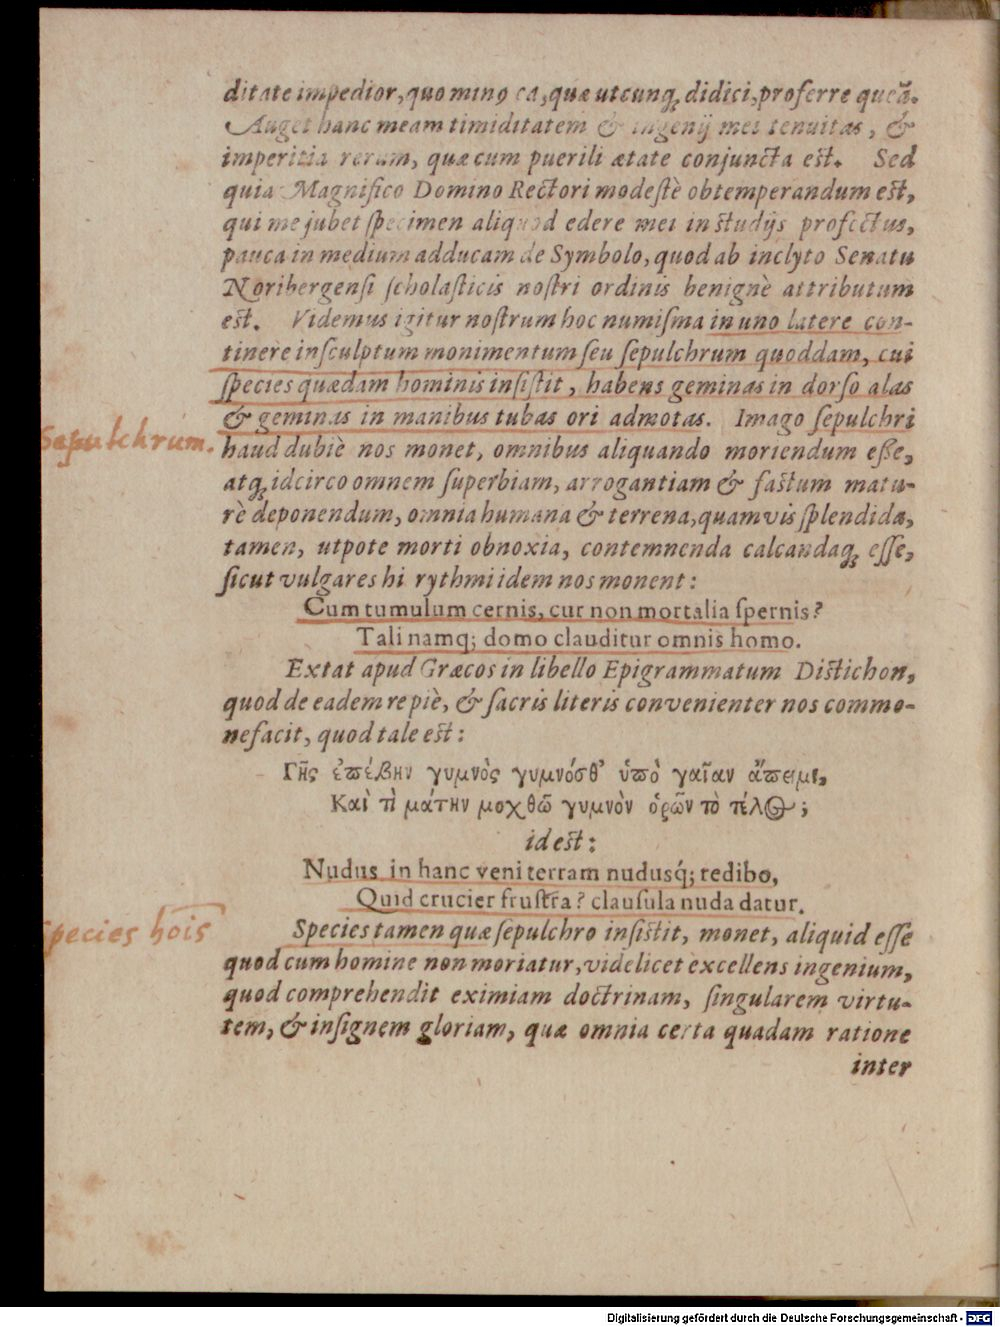 ditate impedior, quo minꝰ ea, quæ utcunq; didici, proferre queã.
Auget hanc meam timiditatem & ingenij mei tenuitas, &
imperitia rerum, quæ cum puerili ætate conjuncta est. Sed
quia Magnifico Domino Rectori modestè obtemperandum est,
qui me jubet specimen aliquod edere mei in studijs profectus,
pauca in medium adducam de Symbolo, quod ab inclyto Senatu
Noribergensi scholasticis nostri ordinis benignè attributum
est. Videmus igitur nostrum hoc numisma in uno latere con-
tinere insculptum monimentum seu sepulchrum quoddam, cui
species quædam hominis insistit, habens geminas in dorso alas
& geminas in manibus tubas ori admotas. Imago sepulchri
Sepulchrum.
haud dubiè nos monet, omnibus aliquando moriendum esse,
atq; idcirco omnem superbiam, arrogantiam & fastum matu-
rè deponendum, omnia humana & terrena, quamvis splendida,
tamen, utpote morti obnoxia, contemnenda calcandaq; esse,
sicut vulgares hi rythmi idem nos monent:
Cum tumulum cernis, cur non mortalia spernis?
Tali namq; domo clauditur omnis homo.
Extat apud Græcos in libello Epigrammatum Distichon,
quod de eadem re piè, & sacris literis convenienter nos commo-
nefacit, quod tale est:
Γῆς ἐπέβην γυμνὸς γυμνόσθ' ὑπὸ γαῖαν ἄπειμι,
Καὶ τὶ μάτην μοχθῶ γυμνὸν ὁρῶν τὸ τέλος;
id est:
Nudus in hanc veni terram nudusq́; redibo,
Quid crucier frustra? clausula nuda datur.
Species hoīs
Species tamen quæ sepulchro insistit, monet, aliquid esse
quod cum homine non moriatur, videlicet excellens ingenium,
quod comprehendit eximiam doctrinam, singularem virtu-
tem, & insignem gloriam, quæ omnia certa quadam ratione
inter
Digitalisierung gefördert durch die Deutsche Forschungsgemeinschaft - DFG